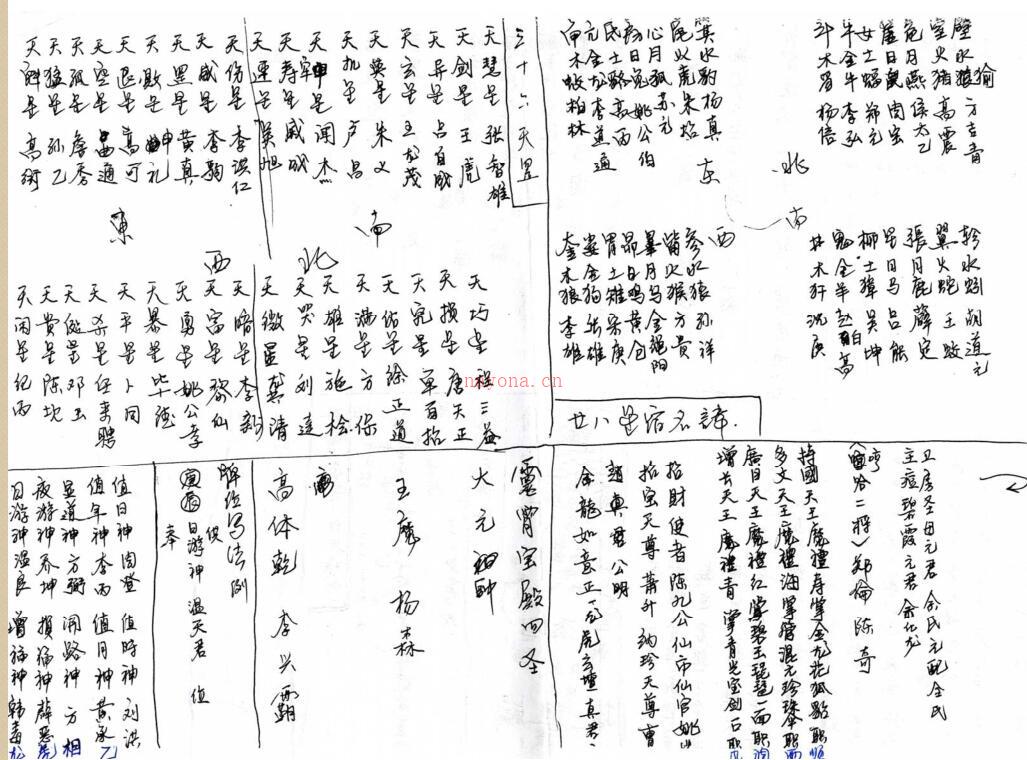 壁水㺄 方吉清
室火猪 高震
危月燕 侯太乙
虚日鼠 周宝
女土蝠 郑元
牛金牛 李弘
斗木 杨信
北
箕水豹 杨真
尾火虎 朱招
心月狐 苏元
房日兔 姚公伯
氐土貉 高丙
亢金龙 李道通
木蛟 柏林
东
南
轸水蚓 胡道元
翼火蛇 王蛟
張月鹿 薛定
星日马 吕能
柳土獐 吴坤
鬼金羊 赵白高
井木犴 沈庚
西
参水猿 孙祥
觜火猴 方贵
畢月乌 金绳阳
昴日鸡 黄仓
胃土雉 宋庚
娄金狗 张雄
奎木狼 李雄
廿八星宿名諱
三十六天罡
天慧星 张智雄
天剑星 王虎
天异星 吕自成
天玄星 王龙茂
天英星 朱义
天机星 卢昌
天牢星 闻杰
天寿星 戚成
天速星 吴旭
天伤星 李洪仁
天威星 李駒
天黑星 黄真
天败星 申礼
天退星 高可
天空星 通
天孤星 詹秀
天猛星 孙乙
天星 高衍
南
東
北
西
天巧星 程三益
天损星 唐天正
天究星 单百招
天佑星 徐正道
天满星 方保
天雄星 施桧
天哭星 刘达
天微星 龚清
天暗星 李新
天富星 黎仙
天勇星 姚公孝
天暴星 毕德
天平星 卜同
天杀星 任来聘
天星 邓玉
天贵星 陈坎
天闲星 纪丙
卫房圣母元君 余氏元配金氏
主痘碧霞元君 余化龙
(亨哈二将) 郑倫 陈奇
持國天王魔禮寿掌金龙花狐貂职顺
多文天王魔禮海掌管混元珍珠傘职雨
廣目天王魔禮红掌碧玉琵琶一面职调
增長天王魔禮青掌青光宝剑一口职风
招財使者陈九公仙市仙官姚
招宝天尊萧升纳珍天尊曹
趙真君公明
金龍如意正一龙虎玄壇真君
霊霄宝殿四圣
大元帥
王魔 杨森
高体乾 李兴霸
解给写法例
日游神 温天君 值
奉
值日神 周登 值時神 刘洪
值年神 李丙 值月神 黄承乙
显道神方弼 開路神 方相
夜游神乔坤 損福神 薛恶虎
日游神温良 增福神 韩毒龙